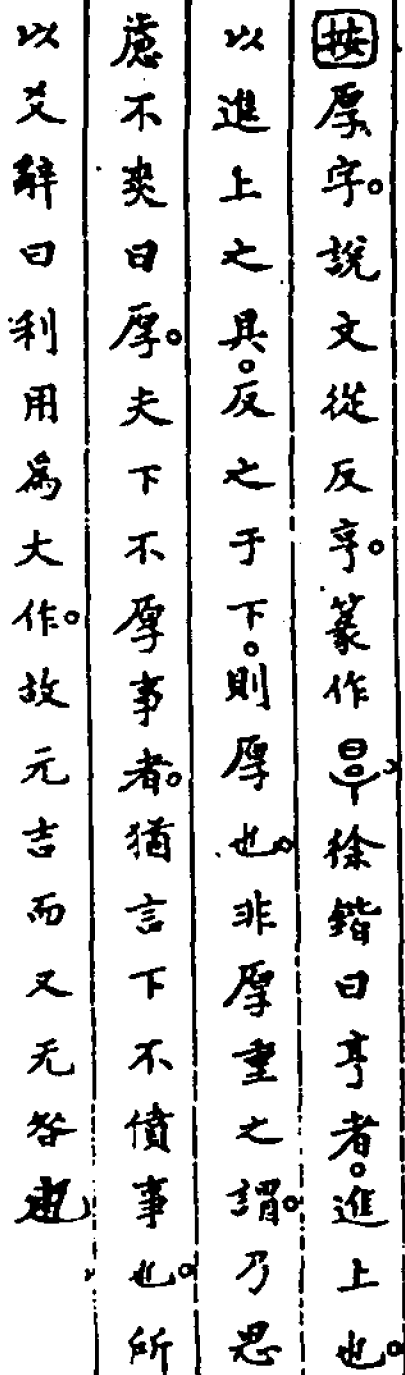 按厚字。說文從反亯。篆作𣆪徐鍇曰亯者。進上也。
以進上之具。反之于下。則厚也。非厚重之謂。乃思
慮不爽曰厚。夫下不厚事者。猶言下不僨事也。所
以爻辭曰利用爲大作。故元吉而又无咎也